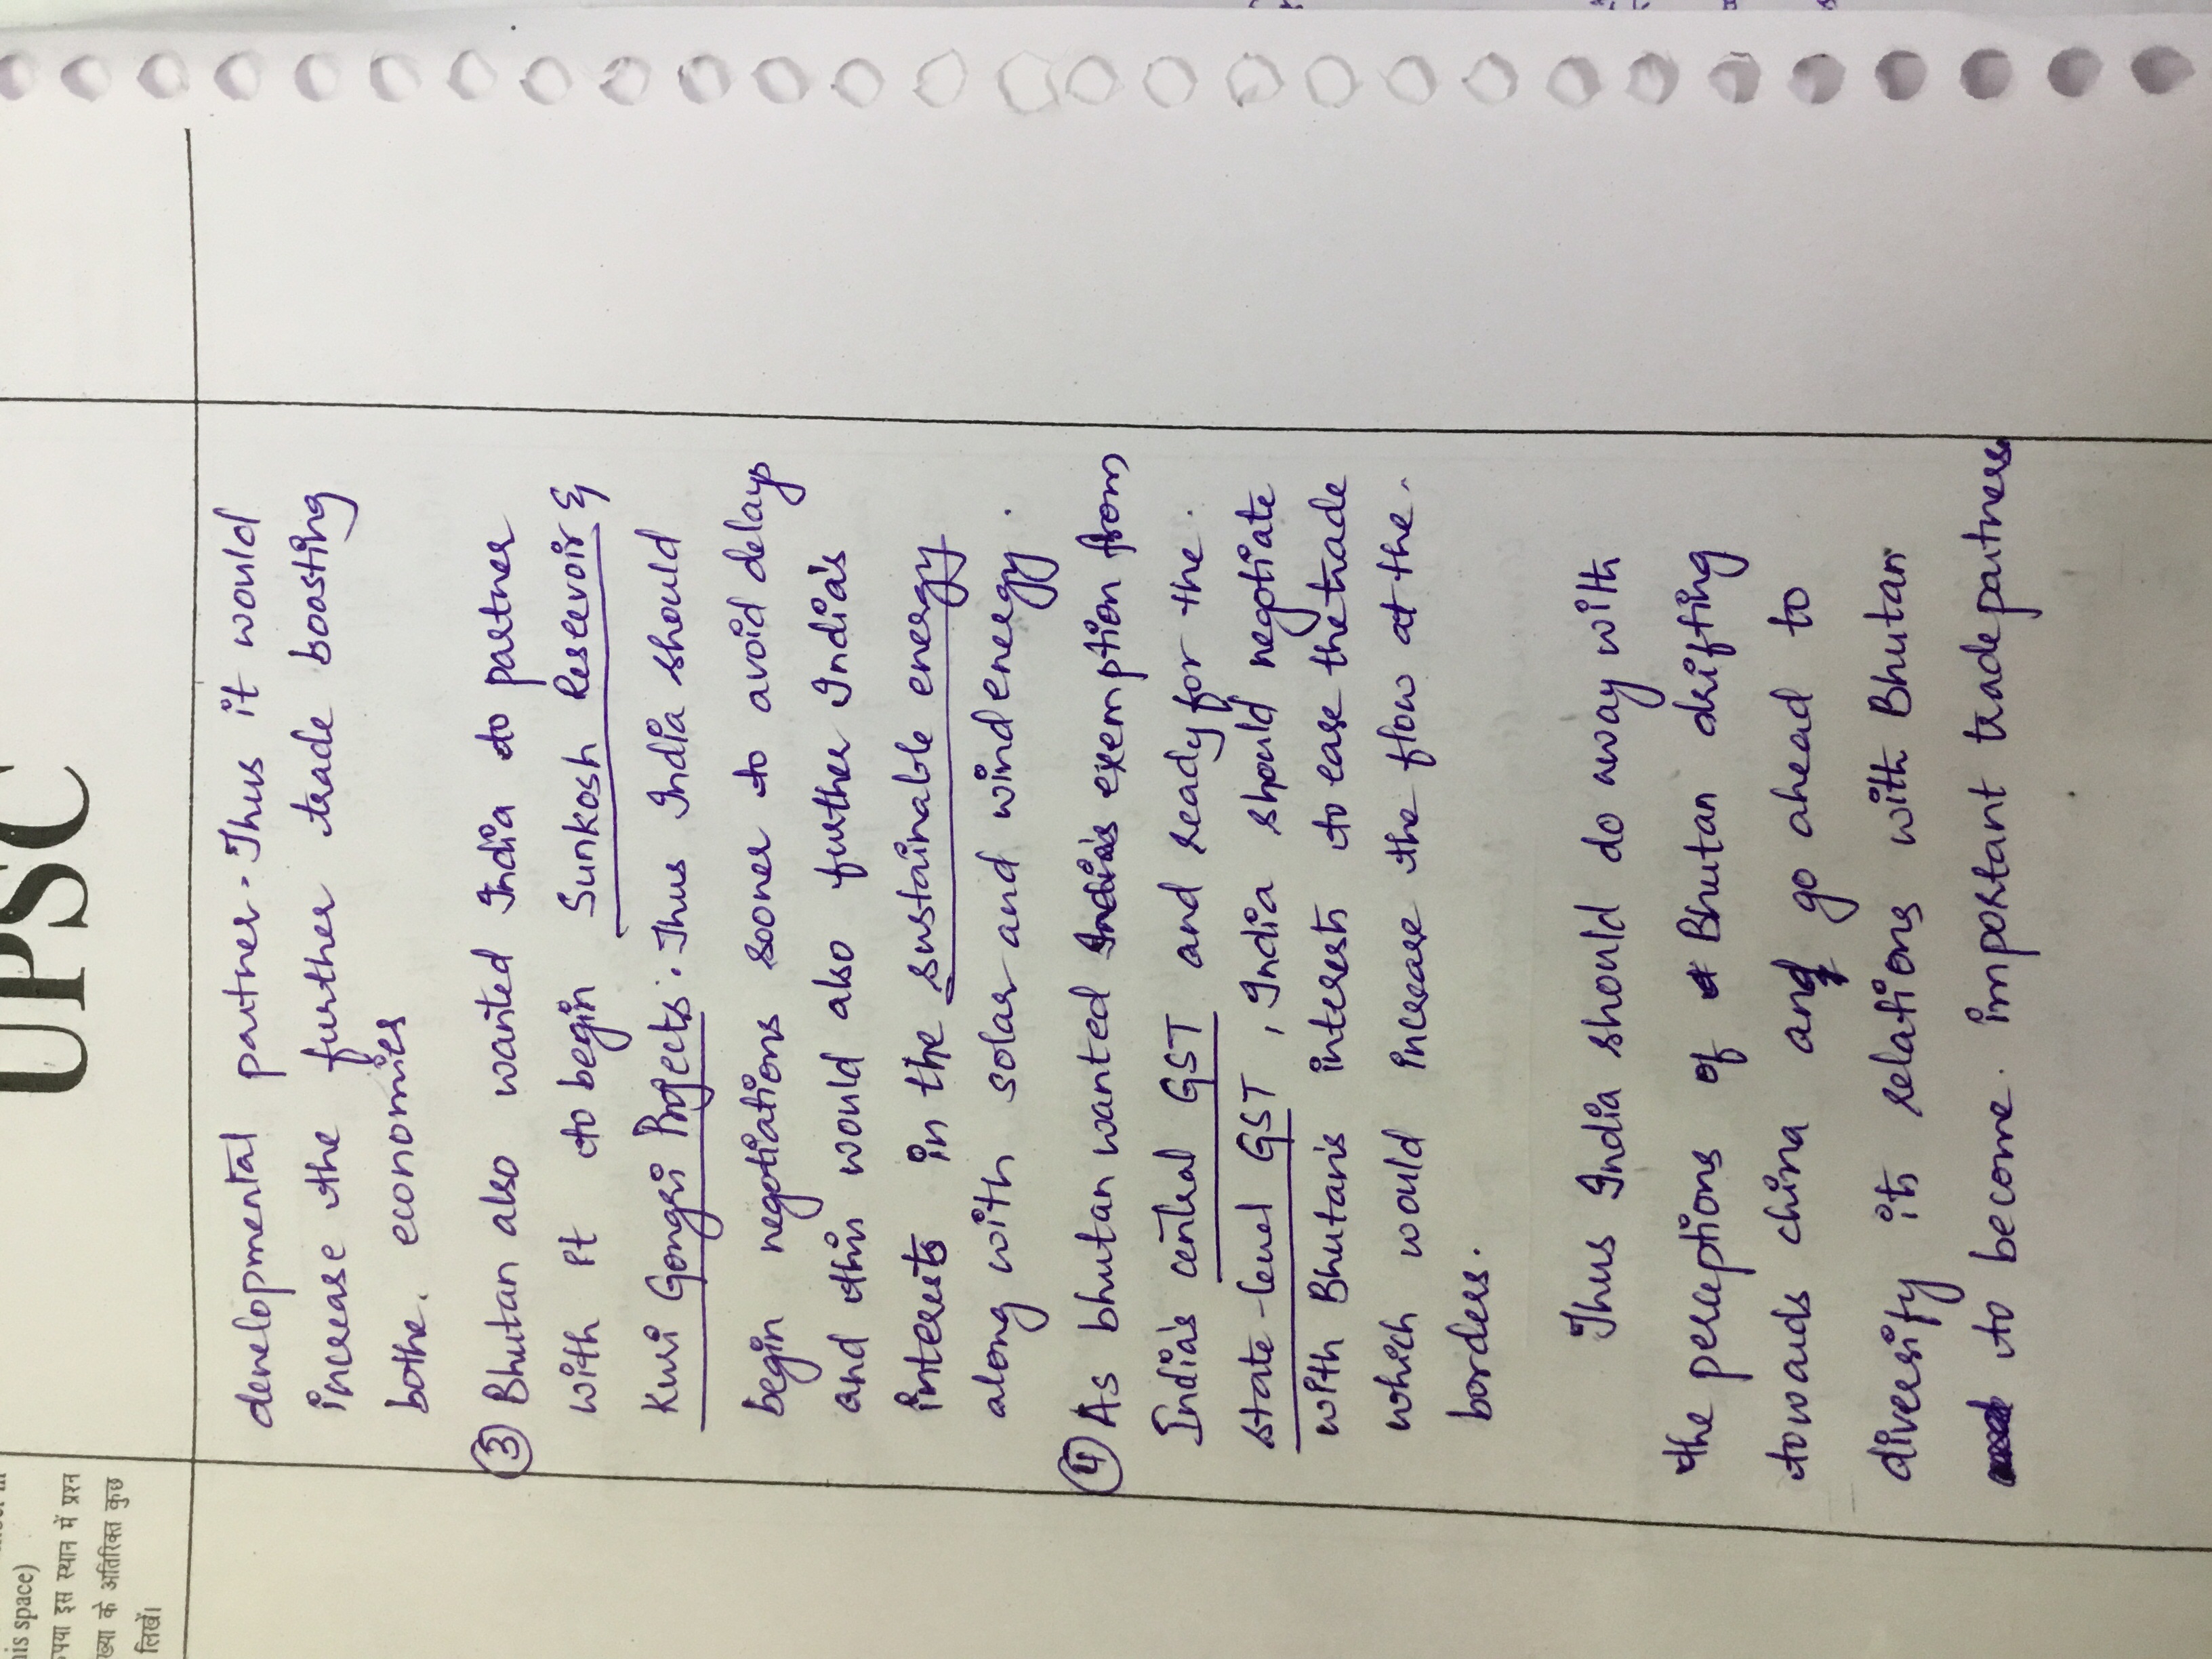 UPSC
his space)
पया इस स्थान में प्रश्न
ख्या के अतिरिक्त कुछ
लिखें।
developmental partner. Thus it would
increase the further trade boosting
bothe. economies
③ Bhutan also wanted India to partner
with it to begin Sunkosh Reservoir &
Kuri Gongri Projects. Thus India should
begin negotiations sooner to avoid delays
and this would also further India's
interests in the sustainable energy
along with solar and wind energy.
④ As bhutan wanted India's exemption from
India's central GST and ready for the.
state-level GST, India should negotiate
with Bhutan's interests to ease the trade
which would increase the flow at the.
borders.
Thus India should do away with
the perceptions of Bhutan drifting
towards china and go ahead to
diversify its relations with Bhutan
to become. important trade partners